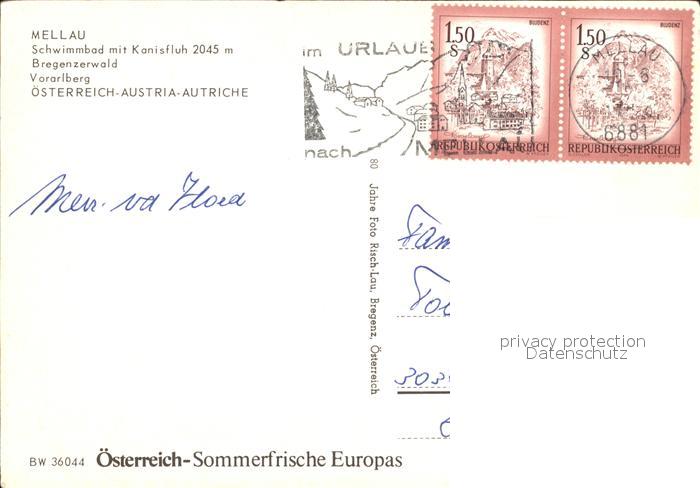 MELLAU
Schwimmbad mit Kanisfluh 2045 m
Bregenzerwald
Vorarlberg
ÖSTERREICH-AUSTRIA-AUTRICHE
im URLAUB
nach MELLAU
1.50 S
BLUDENZ
REPUBLIK ÖSTERREICH
1.50 S
BLUDENZ
REPUBLIK ÖSTERREICH
MELLAU
6881
80 Jahre Foto Risch-Lau, Bregenz, Österreich
Fam
303
privacy protection
Datenschutz
BW 36044 Österreich-Sommerfrische Europas